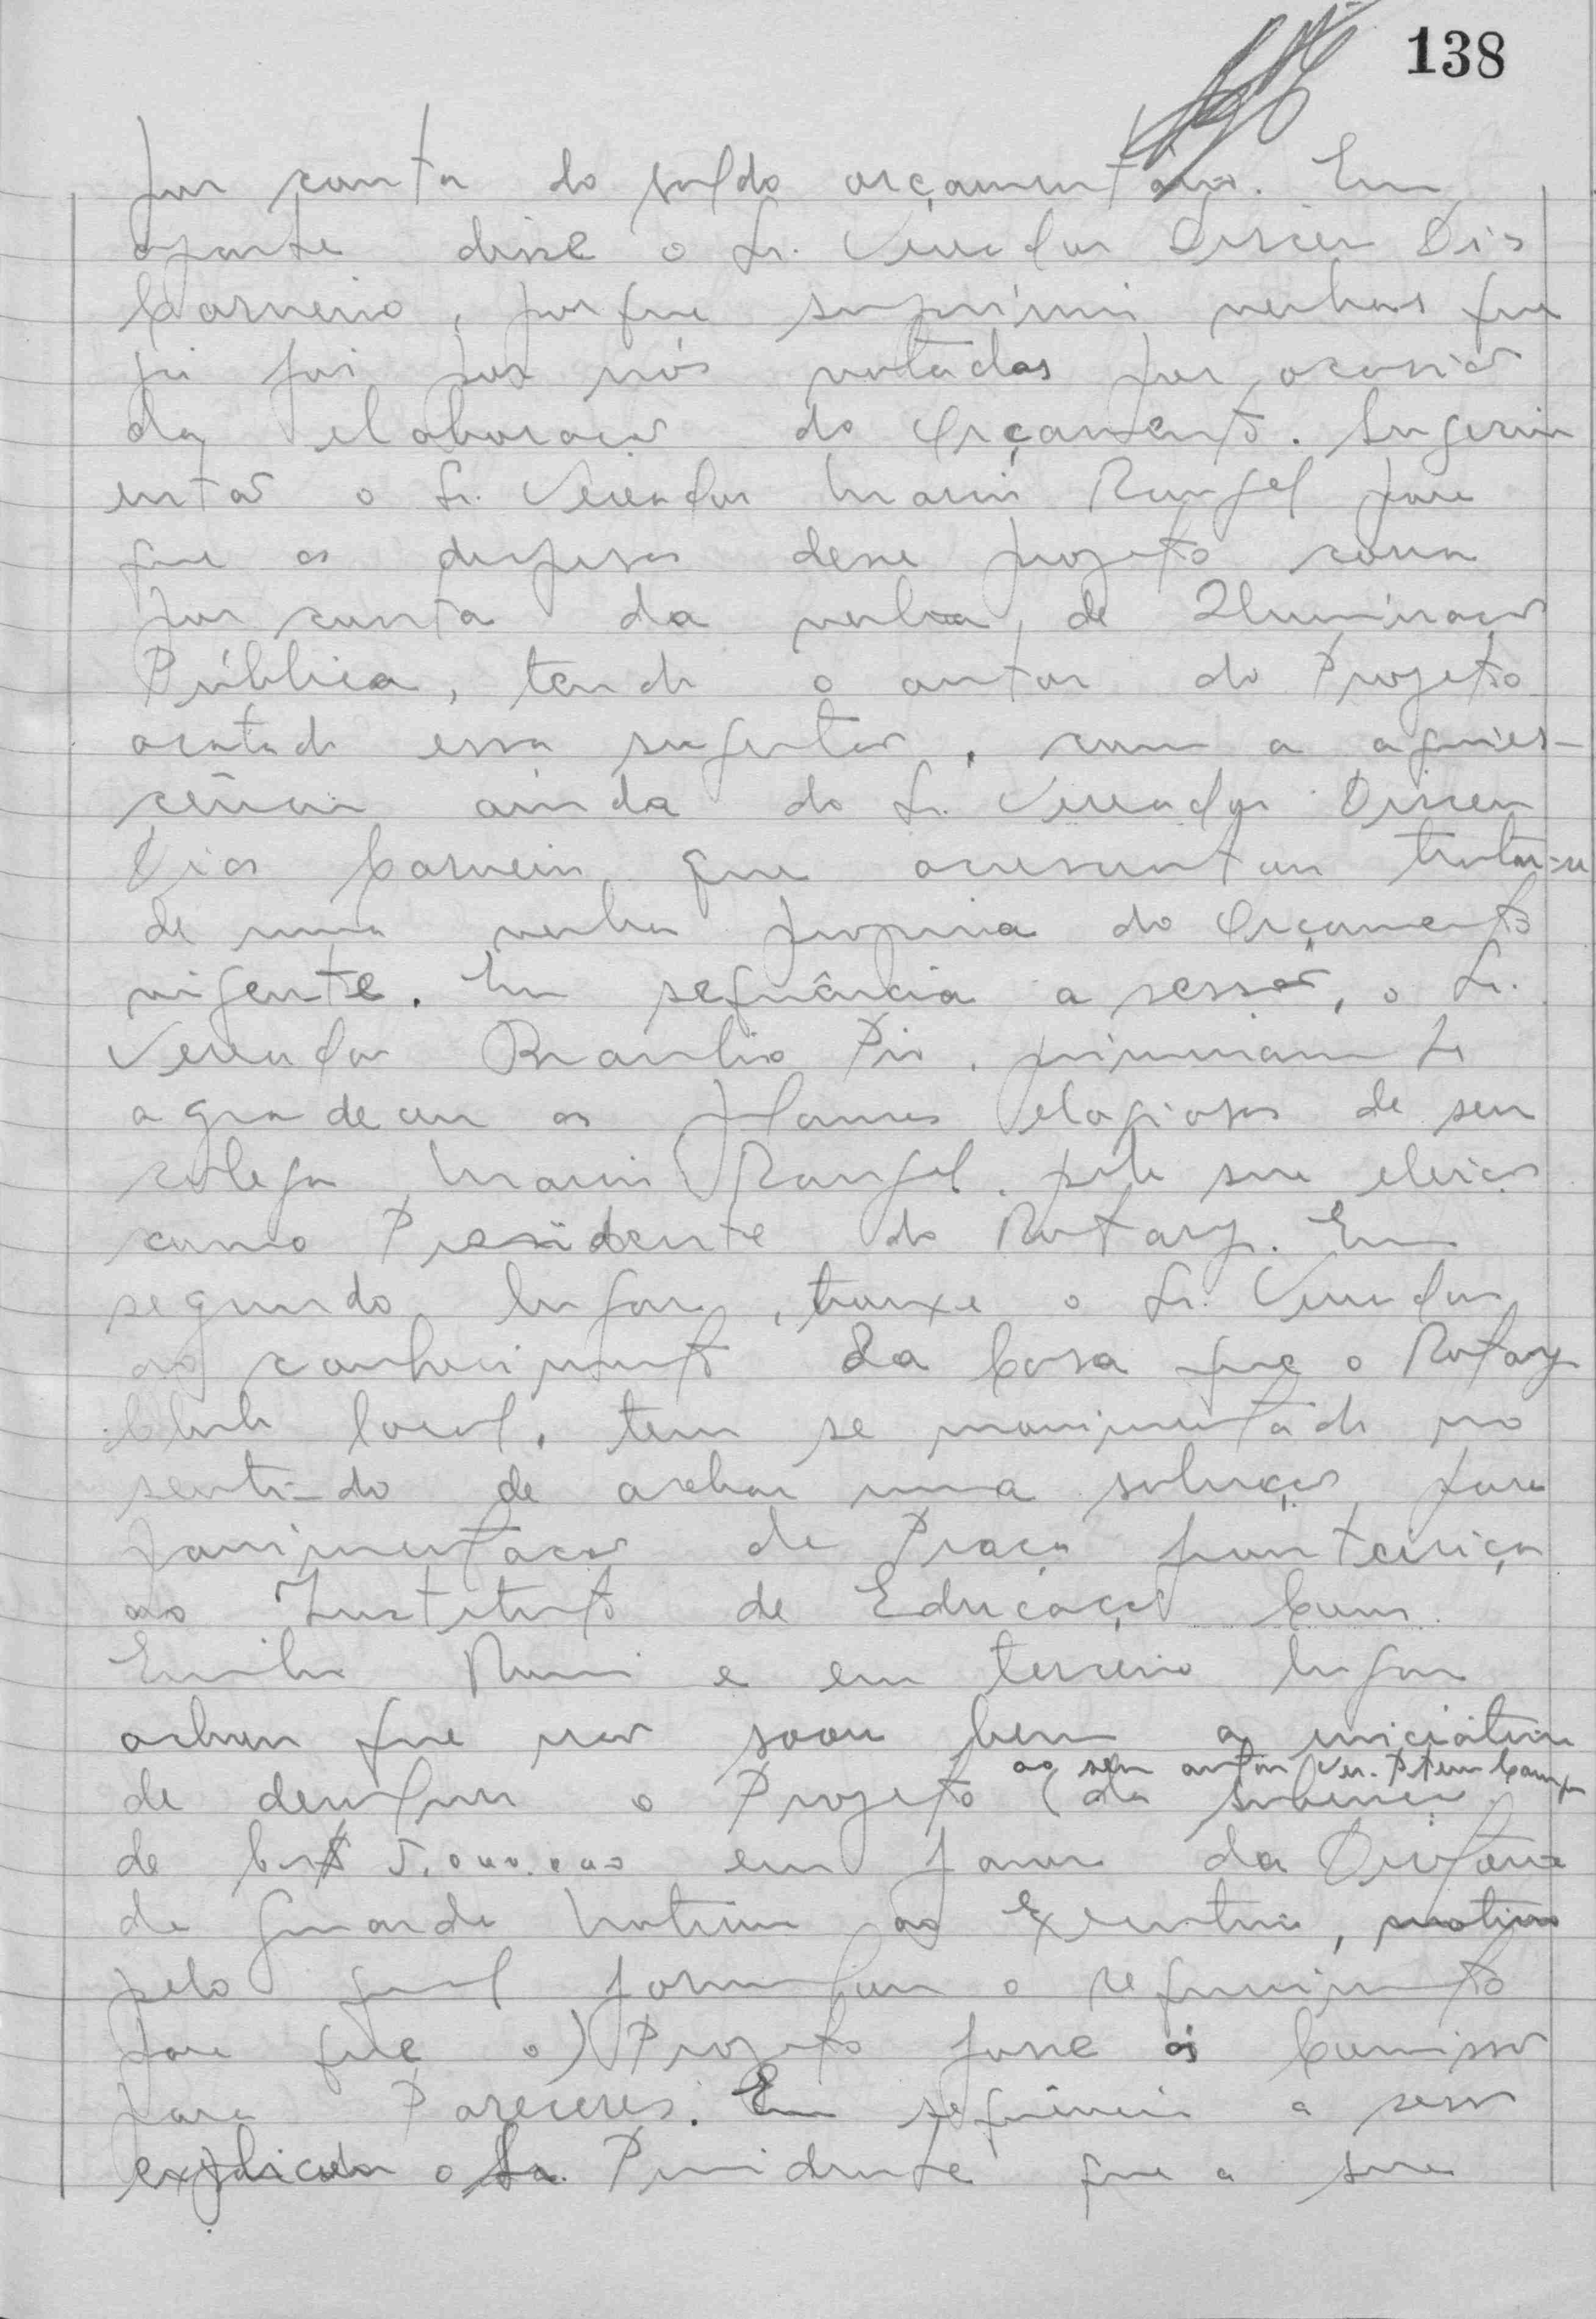 138
por conta do saldo orçamentário. Em
aparte disse o Sr. Vereador Dirceu Dias
Carneiro, porque suprimir verbas que
já foi por nós votadas por ocasião
da elaboração do Orçamento. Sugeriu
então o Sr. Vereador Mario Rangel para
que as despesas desse projeto corra
por conta da verba de Iluminação
Pública, tendo o autor do Projeto
acatado essa sugestão, com a aquies-
cência ainda do Sr. Vereador Dirceu
Dias Carneiro que acrescentou tratar-se
de uma verba propria do Orçamento
vigente. Em sequência a sessão, o Sr.
Vereador Braulio Pio, primeiramente
agradeceu as frases elogiosas de seu
colega Mario Rangel, pela sua eleição
como Presidente do Rotary. Em
segundo lugar, trouxe o Sr. Vereador
ao conhecimento da Casa que o Rotary
Club local, tem se movimentado no
sentido de achar uma solução para
pavimentação de Praça fronteiriça
ao Instituto de Educação Cons.
e em terceiro lugar
achou que não soou bem a iniciativa
de devolver o Projeto (da subvenção
ao seu autor Ver.
de Cr$ 5.000.000 em favor da
de Guarda ao Executivo, motivo
pelo qual formulou o requerimento
para que o) Projeto fosse às Comissão
para Pareceres. Em sequência a sessão
explicou o Sr. Presidente que a sua